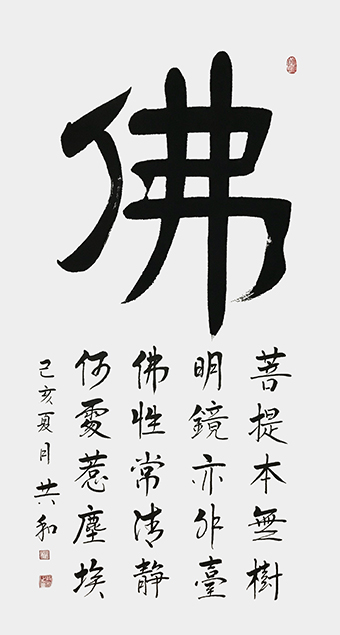 佛
菩提本無樹
明鏡亦非臺
佛性常清靜
何處惹塵埃
己亥夏月共和